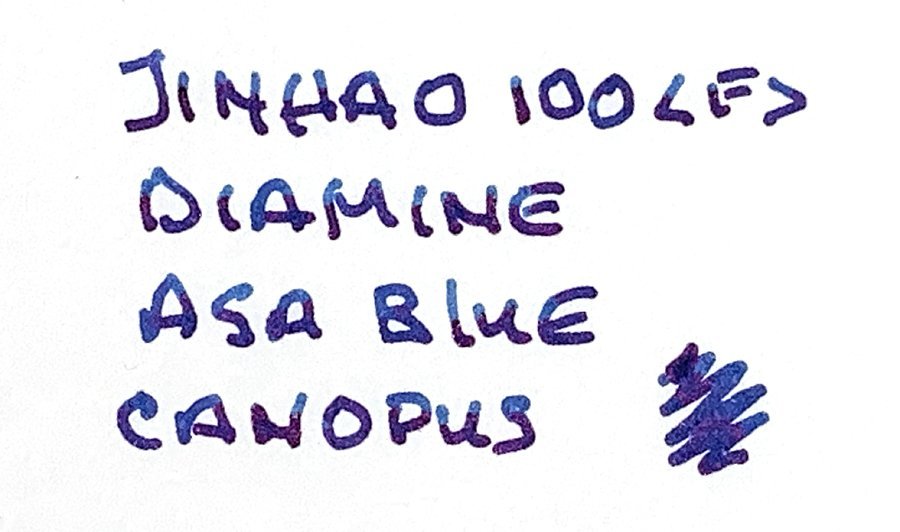 JINHAO 100 <F>
DIAMINE
ASA BLUE
CANOPUS